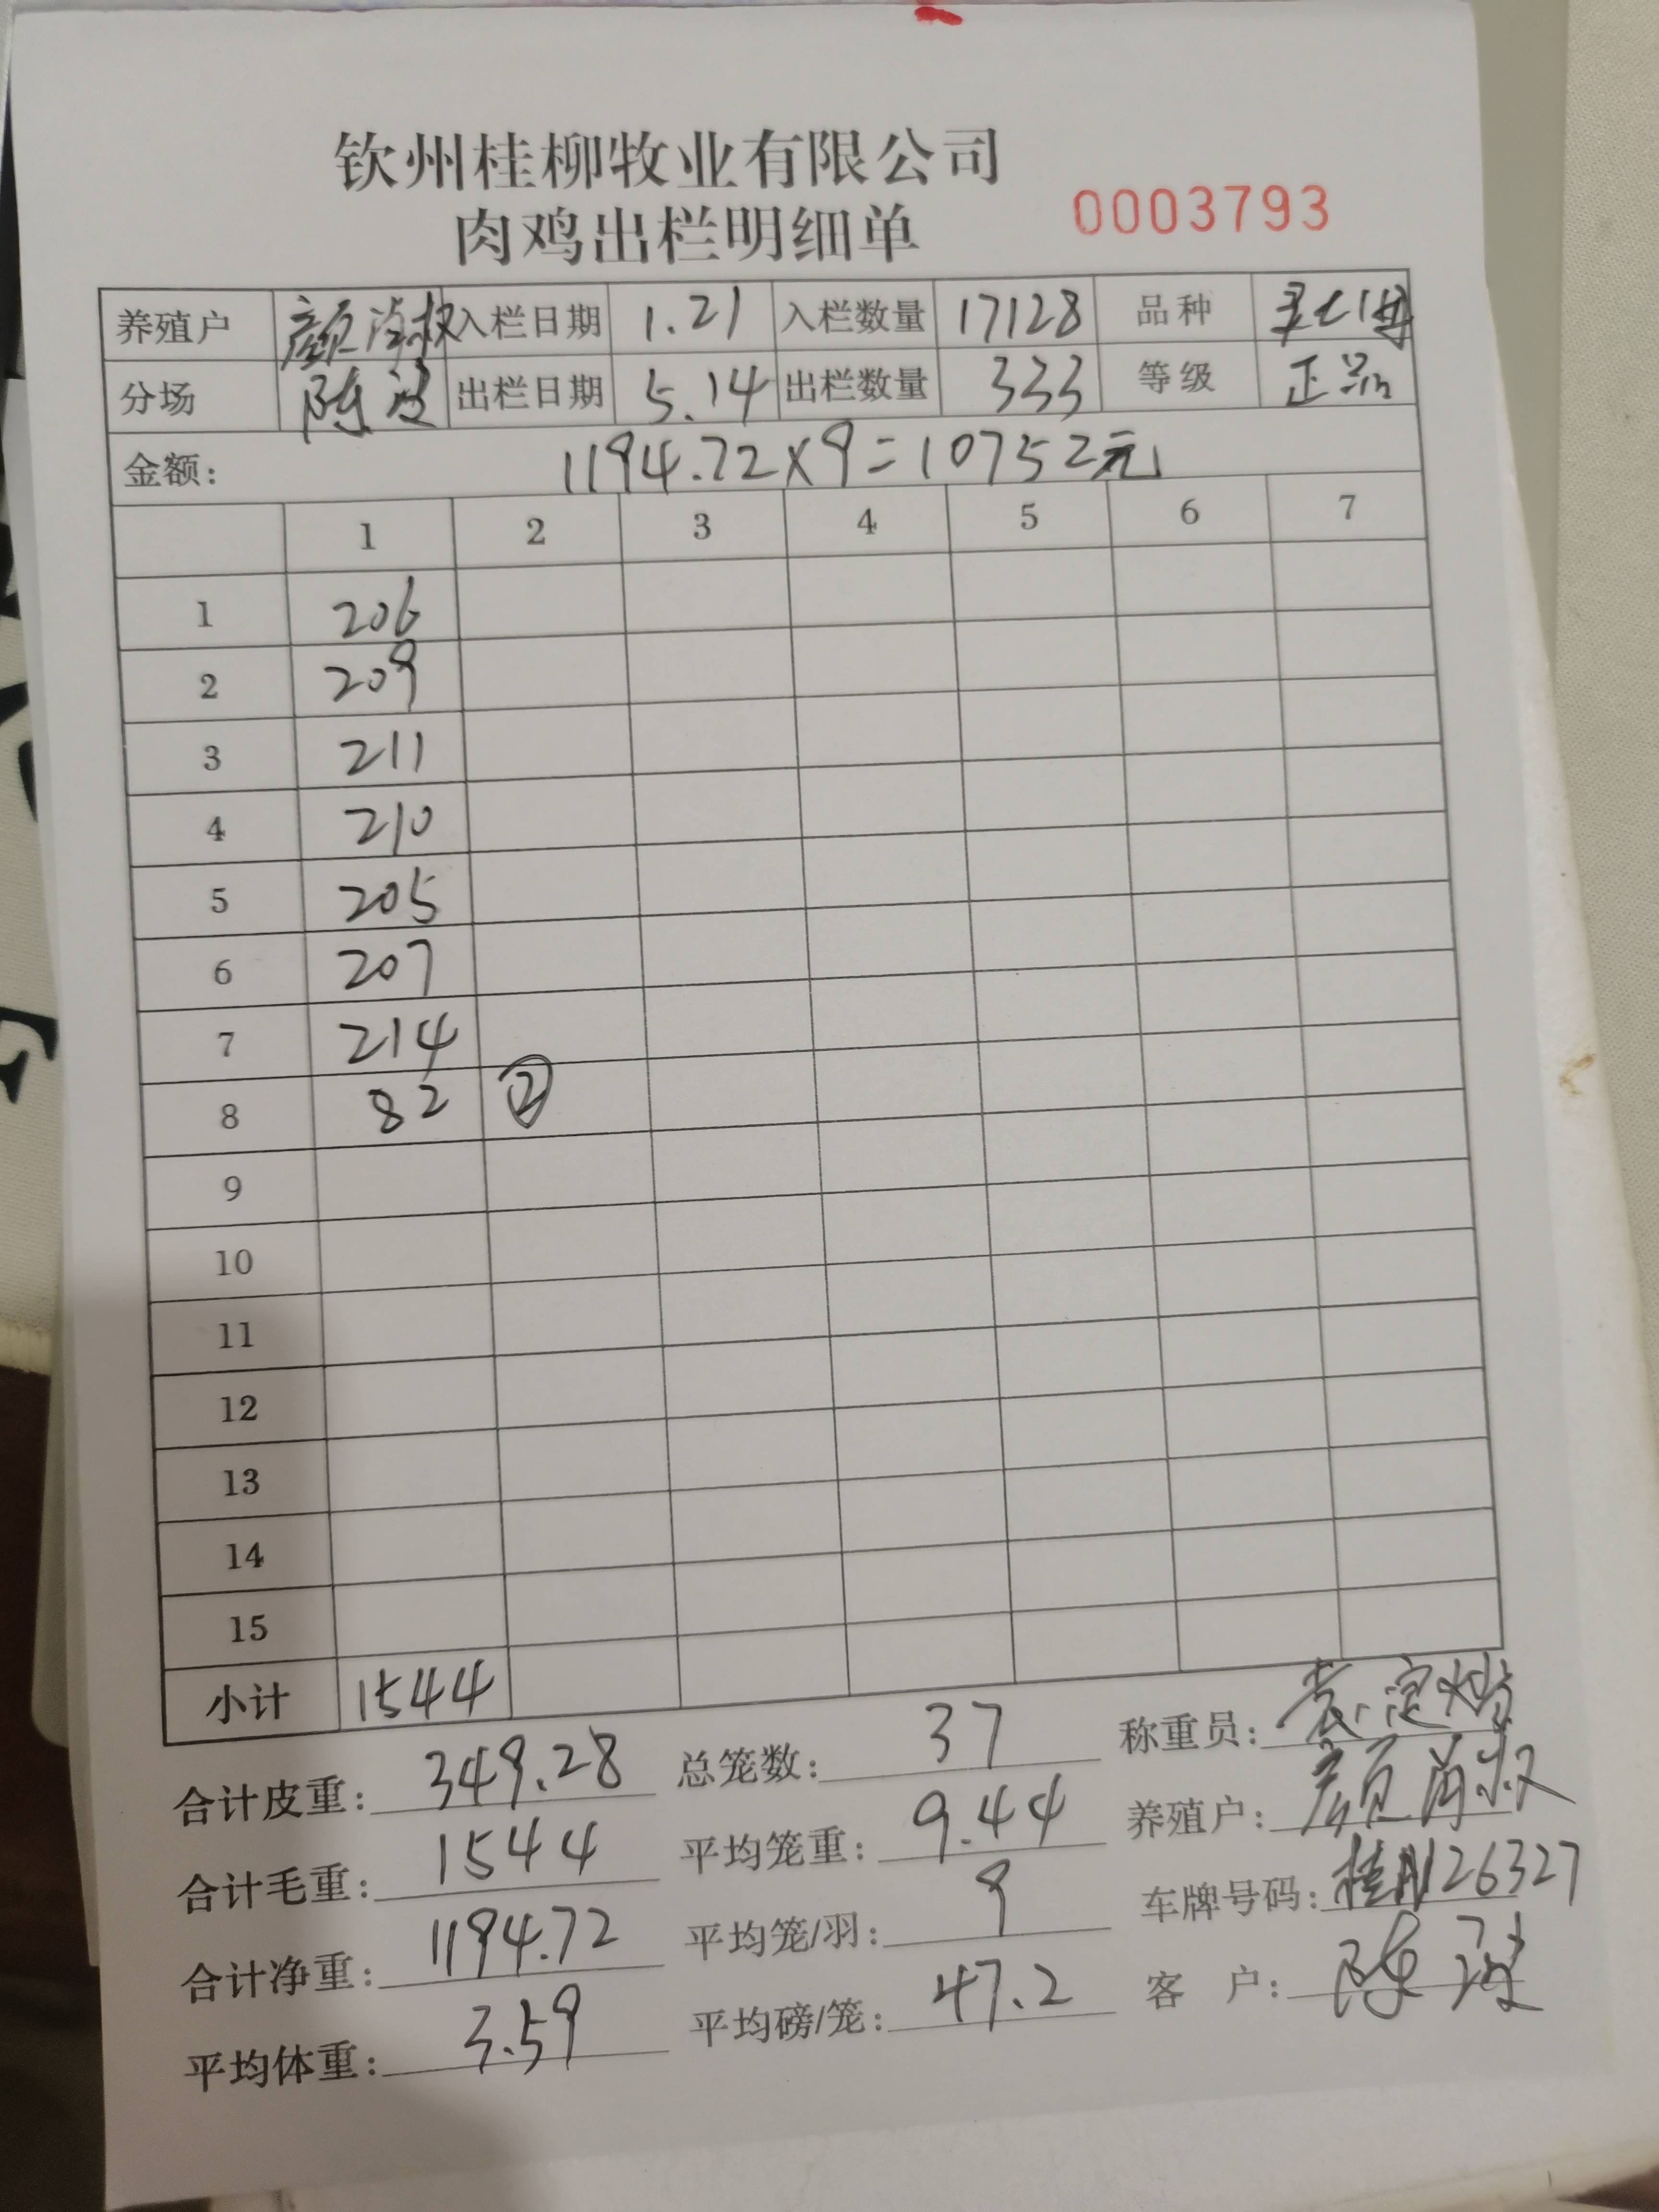 钦州桂柳牧业有限公司
肉鸡出栏明细单 0003793
养殖户 颜 权 入栏日期 1.21 入栏数量 17128 品种
分场 陈波 出栏日期 5.14 出栏数量 333 等级 正品
金额: 1194.72×9=10752元
1 2 3 4 5 6 7
1 206
2 209
3 211
4 210
5 205
6 207
7 214
8 82 ②
9
10
11
12
13
14
15
小计 1544
合计皮重: 349.28 总笼数: 37 称重员: 袁定
合计毛重: 1544 平均笼重: 9.44 养殖户: 颜 权
合计净重: 1194.72 平均笼/羽: 9 车牌号码: 26327
平均体重: 3.59 平均磅/笼: 47.2 客 户: 陈波